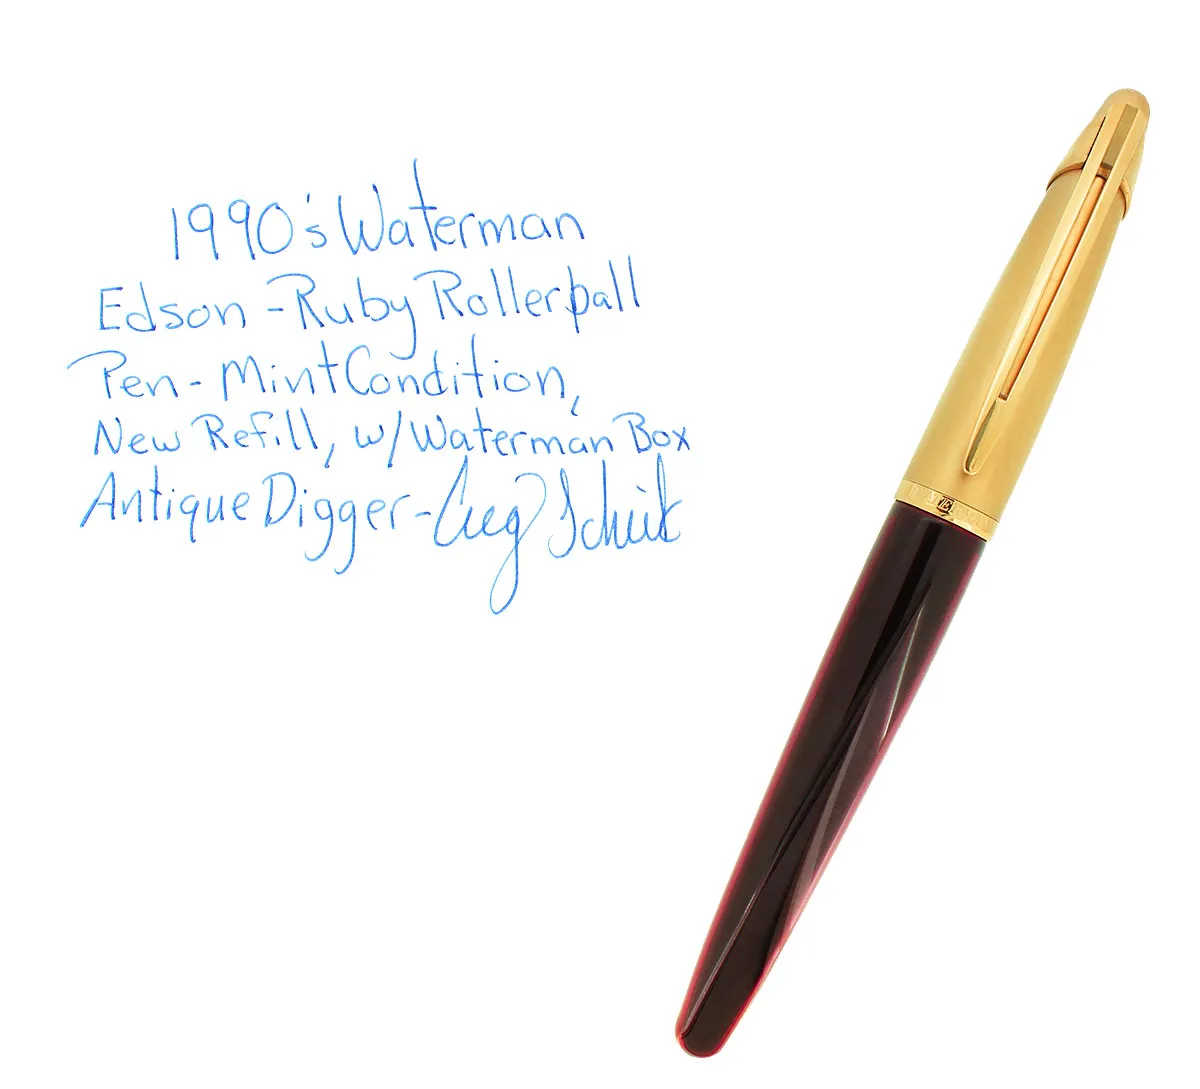 1990's Waterman
Edson - Ruby Rollerball
Pen - Mint Condition,
New Refill, w/Waterman Box
Antique Digger -